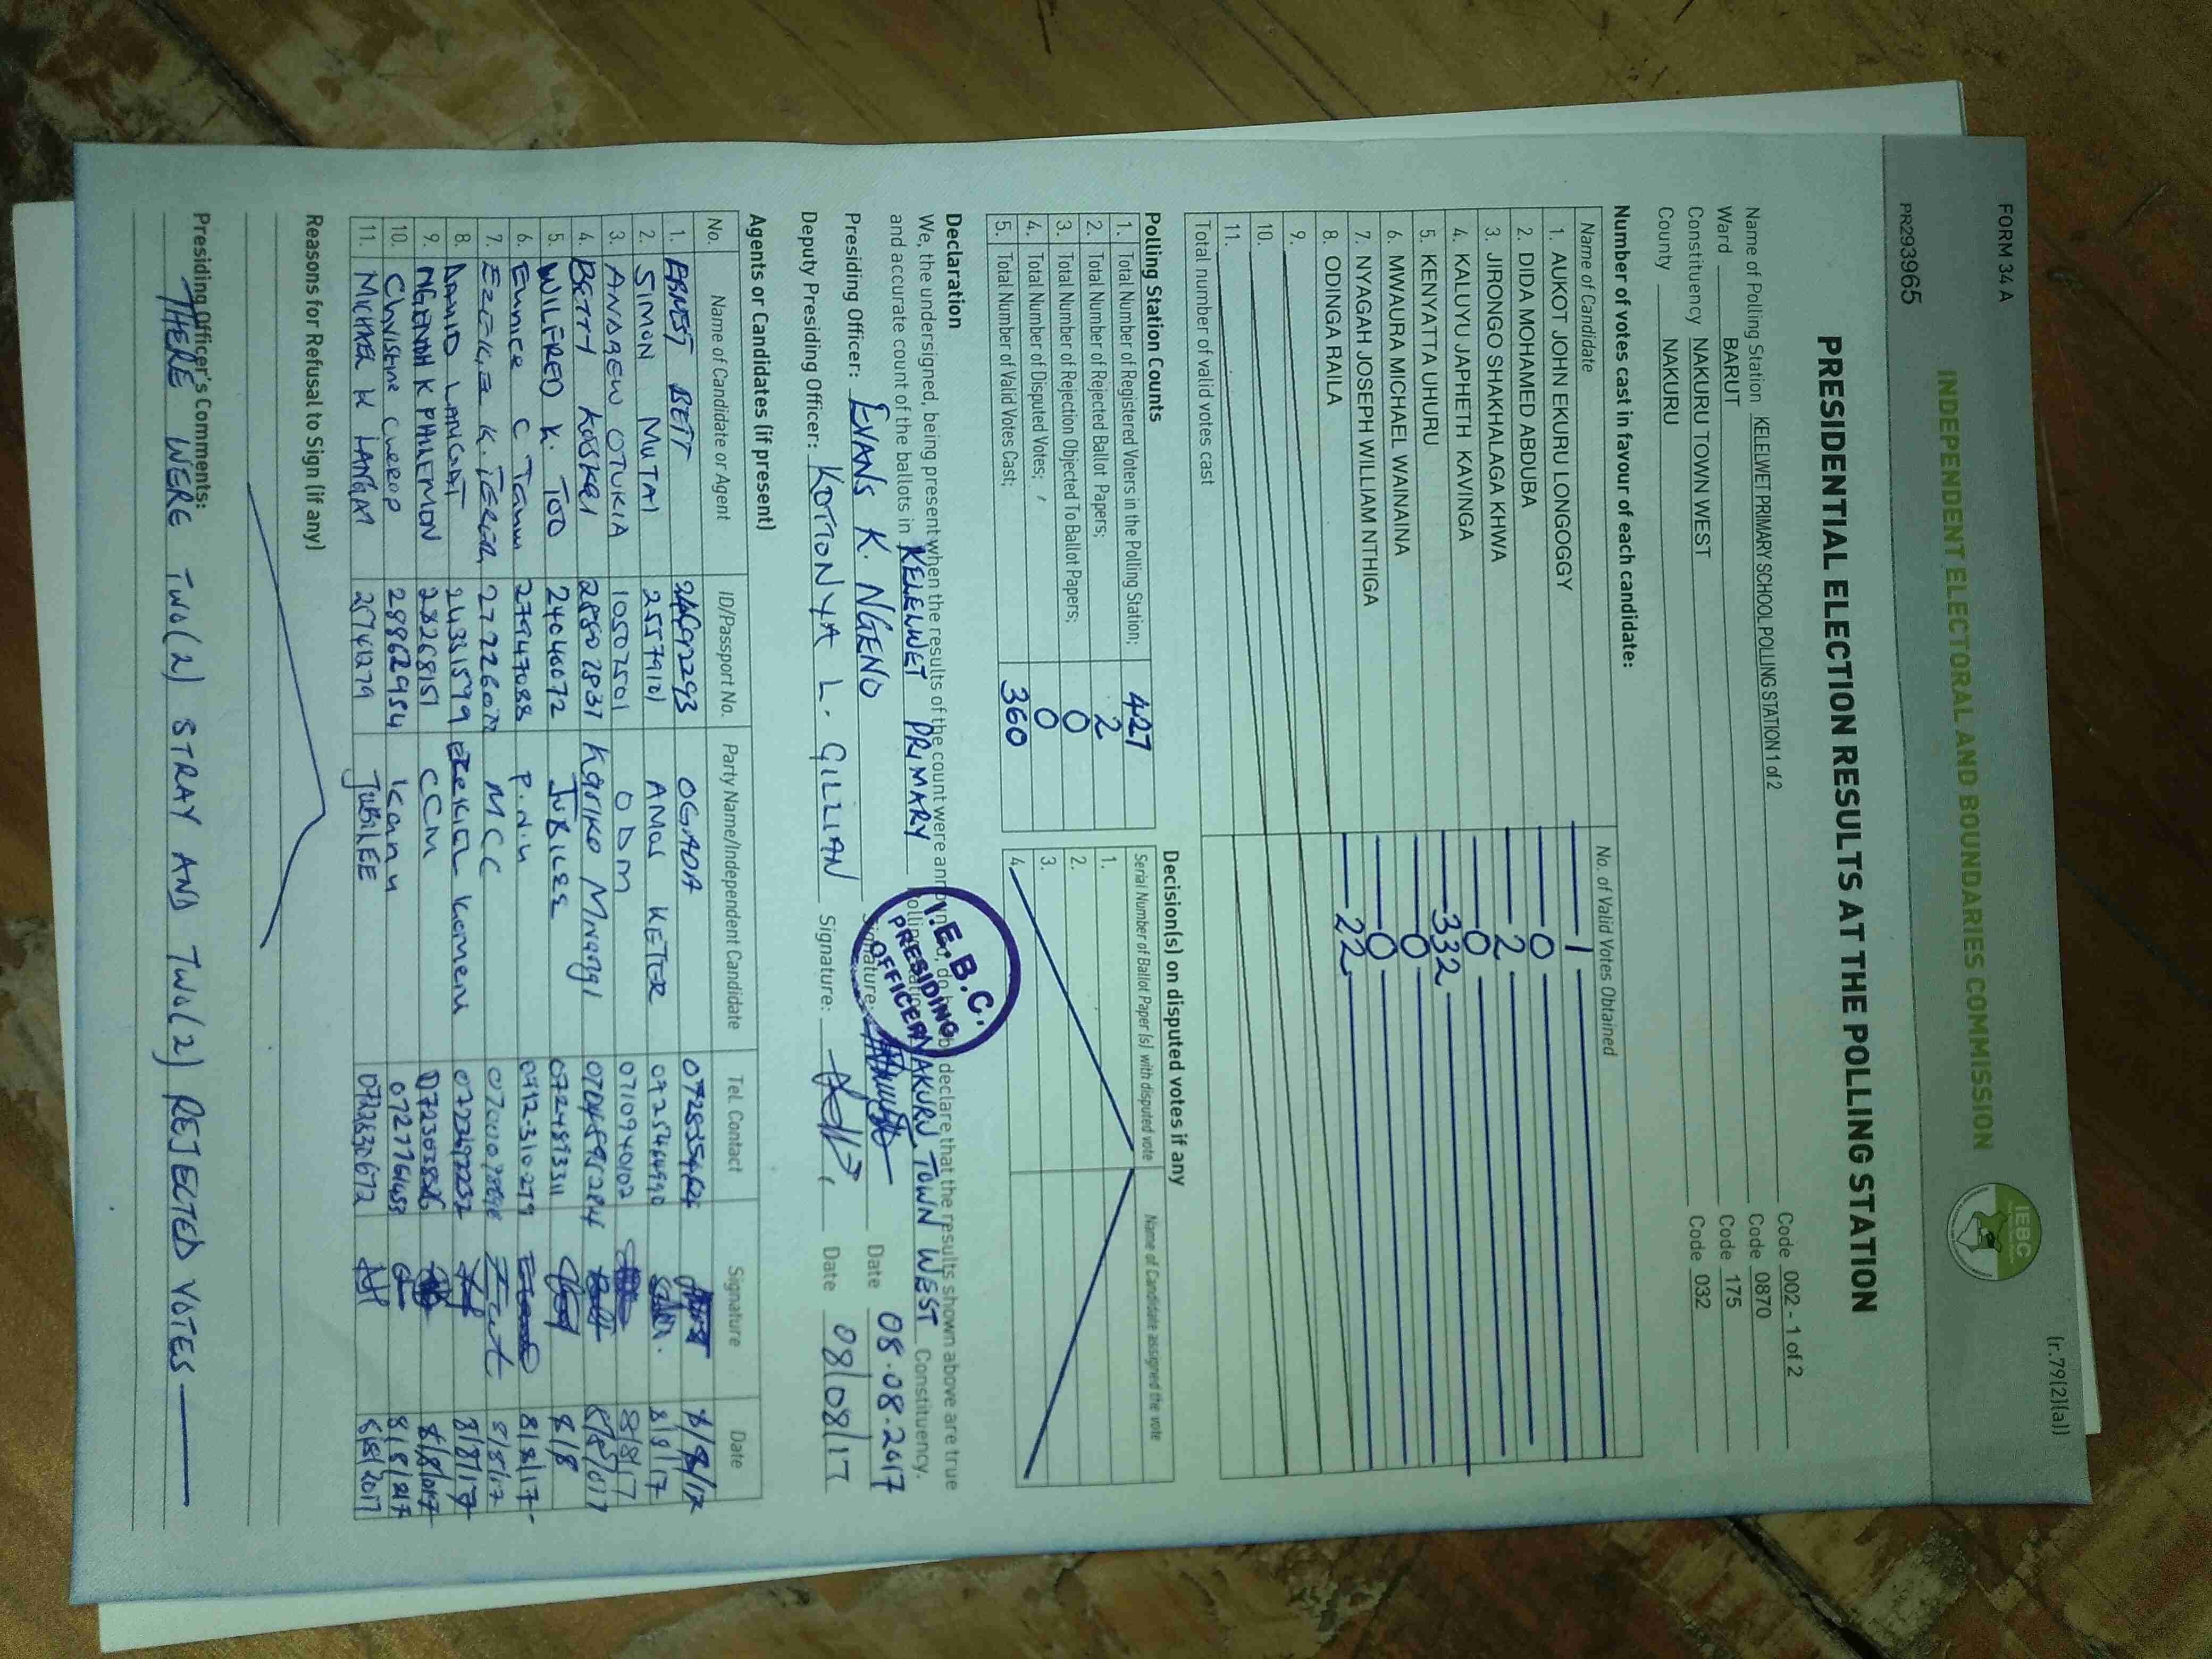 FORM 34 A
(r.79(2)(a))
INDEPENDENT ELECTORAL AND BOUNDARIES COMMISSION
IEBC
PR293965
PRESIDENTIAL ELECTION RESULTS AT THE POLLING STATION
Name of Polling Station KELELWET PRIMARY SCHOOL POLLING STATION 1 of 2 Code 002 - 1 of 2
Ward BARUT Code 0870
Constituency NAKURU TOWN WEST Code 175
County NAKURU Code 032
Number of votes cast in favour of each candidate:
Name of Candidate No. of Valid Votes Obtained
1. AUKOT JOHN EKURU LONGOGGY 1
2. DIDA MOHAMED ABDUBA 0
3. JIRONGO SHAKHALAGA KHWA 2
4. KALUYU JAPHETH KAVINGA 0
5. KENYATTA UHURU 332
6. MWAURA MICHAEL WAINAINA 0
7. NYAGAH JOSEPH WILLIAM NTHIGA 0
8. ODINGA RAILA 22
9.
10.
11.
Total number of valid votes cast
Polling Station Counts
1. Total Number of Registered Voters in the Polling Station; 427
2. Total Number of Rejected Ballot Papers; 2
3. Total Number of Rejection Objected To Ballot Papers; 0
4. Total Number of Disputed Votes; 0
5. Total Number of Valid Votes Cast; 360
Decision(s) on disputed votes if any
Serial Number of Ballot Paper (s) with disputed vote Name of Candidate assigned the vote
1.
2.
3.
4.
Declaration
We, the undersigned, being present when the results of the count were announced, do hereby declare that the results shown above are true
and accurate count of the ballots in KELELWET PRIMARY polling station NAKURU TOWN WEST Constituency.
I.E.B.C.
PRESIDING
OFFICER
Presiding Officer: EVANS K. NGENO Signature: Date 08.08.2017
Deputy Presiding Officer: KOTTONYA L. GILLIAN Signature: Date 08/08/17
Agents or Candidates (if present)
No. Name of Candidate or Agent ID/Passport No. Party Name/Independent Candidate Tel. Contact Signature Date
1. ERNEST BETT OGADA 8/8/17
2. SIMON MUTAI 25579101 AMOS KETER 8/8/17
3. ANDREW OTUKIA 10507501 ODM 0710940102 8/8/17
4. BETTY KOSKEI 28507837 KARIKO MNANGI 8/8/017
5. WILFRED K. TOO 24040072 JUBILEE 0724893311 8/8
6. Eunice C Tanui 27947088 P.N.U 0712-310279 8/8/17
7. EZEKIEL K. MCC 8/8/17
8. DAVID LANGAT 24331599 EZEKIEL 8/8/17
9. NGENOH K PHILEMON 28268151 CCM 8/8/017
10. Christine Cherop 28862954 Kanu 8/8/217
11. MICHAEL K LANGAT JUBILEE 8/8/2017
Reasons for Refusal to Sign (if any)
Presiding Officer's Comments:
THERE WERE TWO(2) STRAY AND TWO(2) REJECTED VOTES